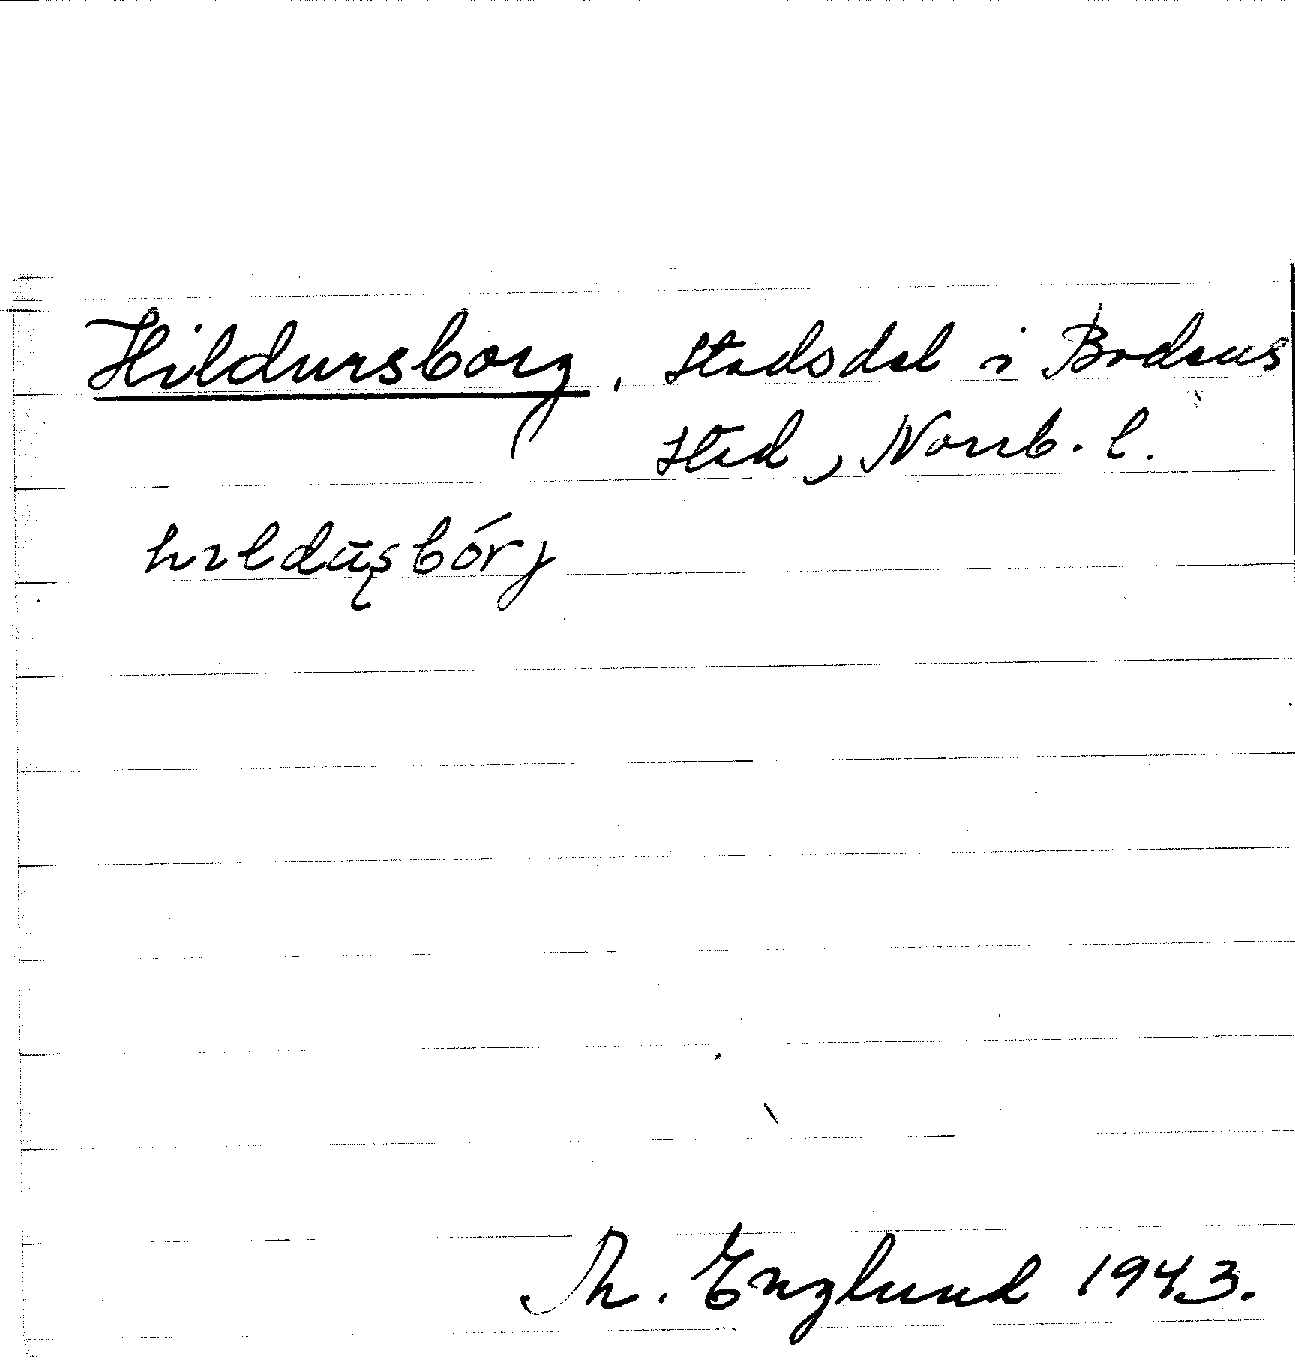 Hildursborg, Stadsdel i Bodens
stad, Norrb. l.
Th. Englund 1943.